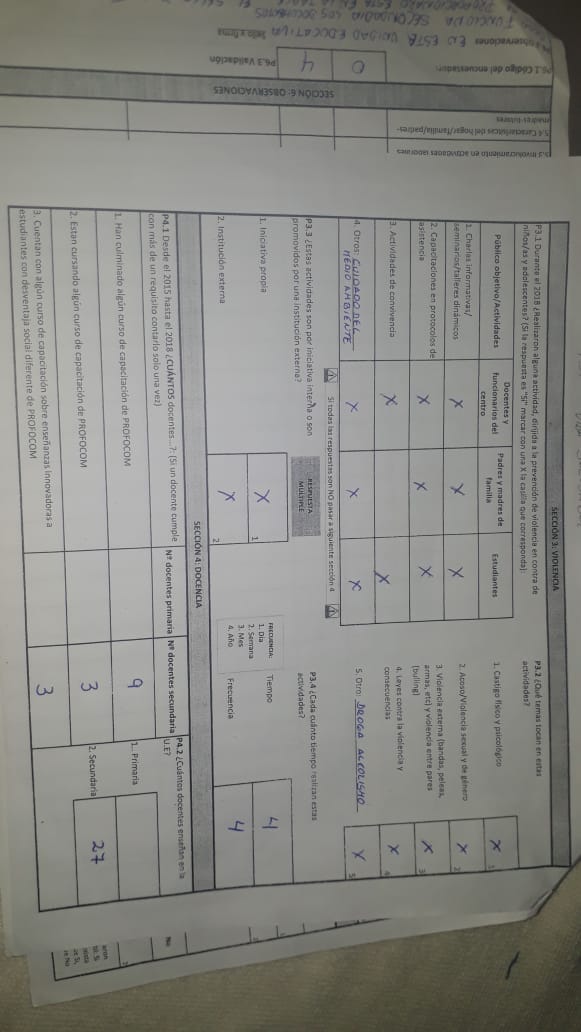 SECCIÓN 3: VIOLENCIA
P3.1 Durante el 2018 ¿Realizaron alguna actividad, dirijida a la prevención de violencia en contra de
niños/as y adolescentes? (Si la respuesta es "SI" marcar con una X la casilla que corresponda):
Público objetivo/Actividades
Docentes y funcionarios del centro
Padres y madres de familia
Estudiantes
1. Charlas informativas/ seminarios/talleres dinámicos X X X
2. Capacitaciones en protocolos de asistencia X X X
3. Actividades de convivencia X X
4. Otros: CUIDADO DEL MEDIO AMBIENTE X X X
Si todas las respuestas son NO pasar a siguiente sección 4
P3.2 ¿Qué temas tocan en estas
actividades?
1. Castigo físico y psicológico X 1
2. Acoso/Violencia sexual y de género X 2
3. Violencia externa (bandas, peleas,
armas, etc) y violencia entre pares
(bulling) X 3
4. Leyes contra la violencia y
consecuencias X 4
5. Otro: DROGA ALCOLISMO X 5
P3.3 ¿Estas actividades son por iniciativa interna o son
promovidos por una institución externa?
RESPUESTA
MULTIPLE
1. Iniciativa propia X 1
2. Institución externa X 2
P3.4 ¿Cada cuánto tiempo realizan estas
actividades?
FRECUENCIA:
1. Dia
2. Semana
3. Mes
4. Año
Tiempo 4
Frecuencia 4
SECCIÓN 4: DOCENCIA
P4.1 Desde el 2015 hasta el 2018 ¿CUÁNTOS docentes...?: (Si un docente cumple
con más de un requisito contarlo solo una vez)
Nº docentes primaria
Nº docentes secundaria
1. Han culminado algún curso de capacitación de PROFOCOM 9
2. Estan cursando algún curso de capacitación de PROFOCOM 3
3. Cuentan con algún curso de capacitación sobre enseñanzas innovadoras a
estudiantes con desventaja social diferente de PROFOCOM 3
P4.2 ¿Cuántos docentes enseñan en la
U.E?
1. Primaria
2. Secundaria 27
5.4 Características del hogar/familia/padres-
madres-tutores
SECCIÓN 6: OBSERVACIONES
P6.1 Código del encuestador: 0 4
P6.3 Validación
observaciones EN ESTA UNIDAD EDUCATIVA
Sello y firma